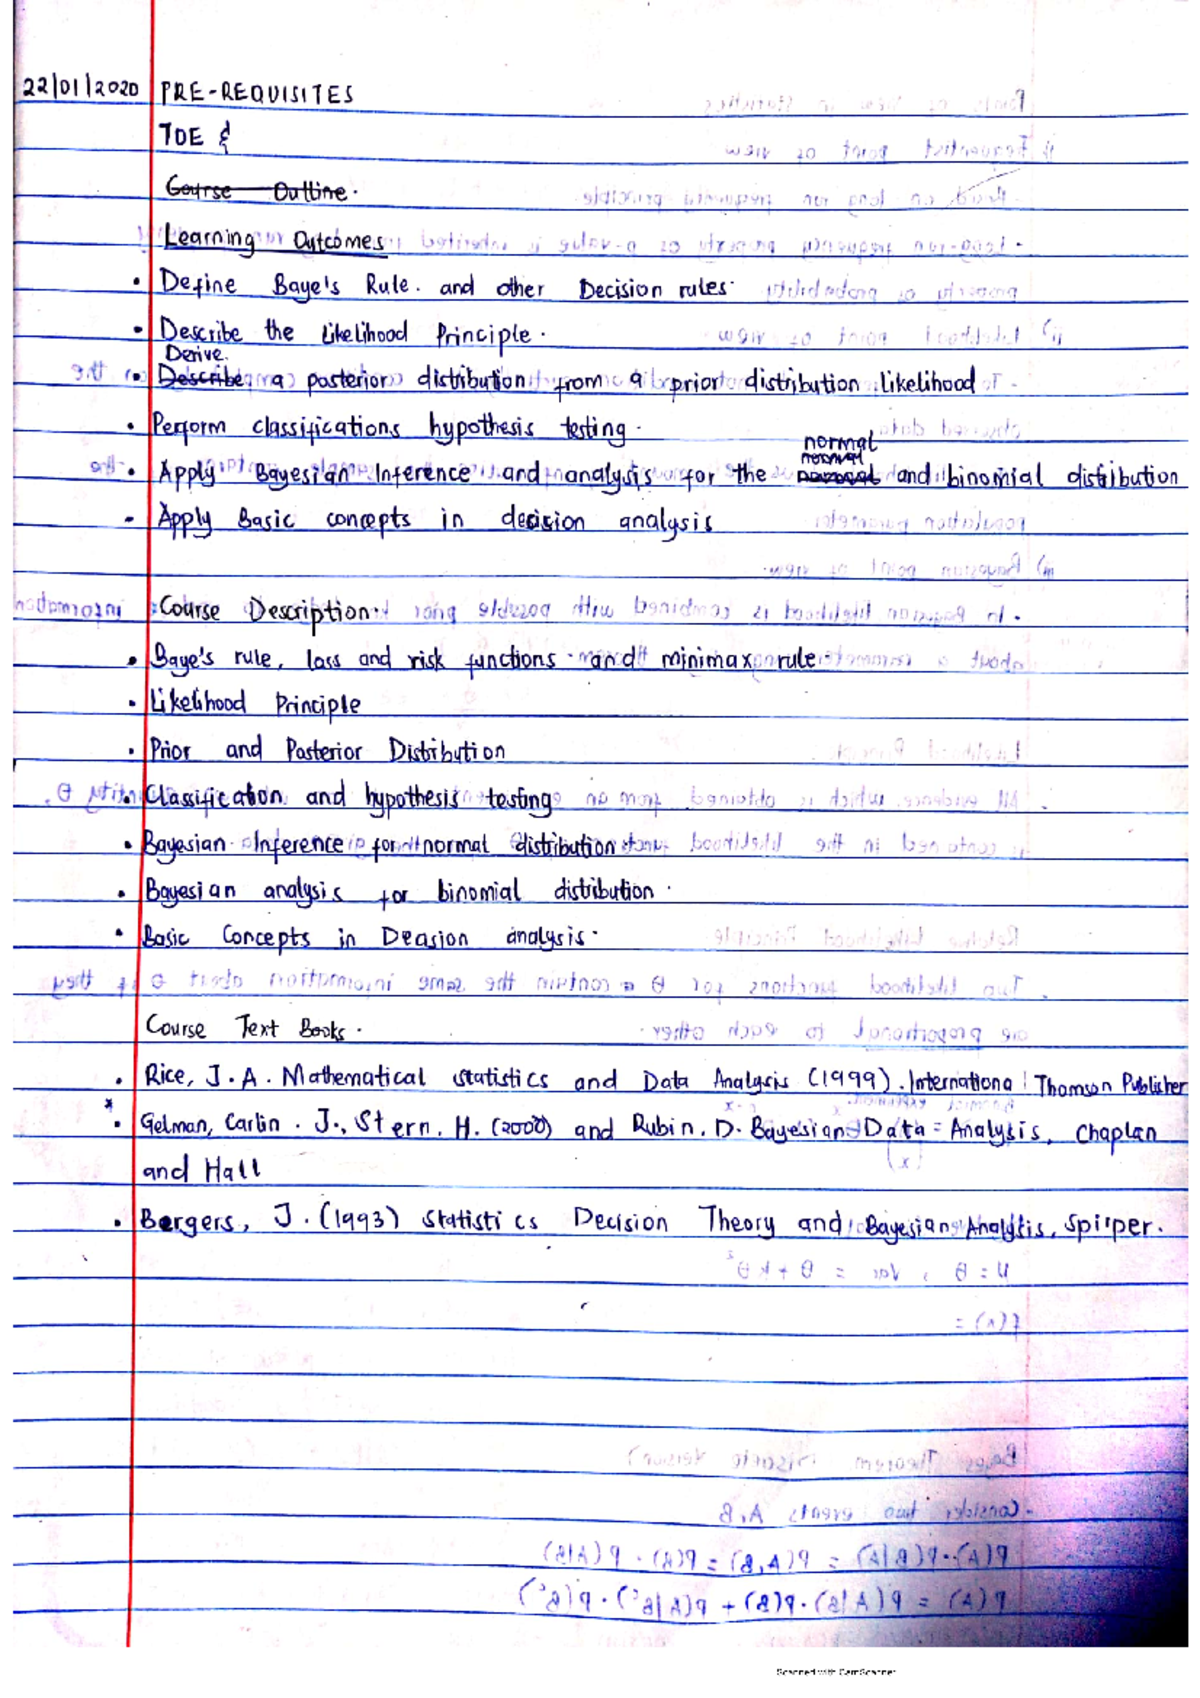 22/01/2020 PRE-REQUISITES
TOE &
Course Outline.
Learning Outcomes
• Define Baye's Rule. and other Decision rules.
• Describe the Likelihood Principle.
Derive.
• Describe a posterior distribution from a prior distribution likelihood
• Perform classifications hypothesis testing.
normal
normal
• Apply Bayesian Inference and analysis for the normal and binomial distribution
- Apply Basic concepts in decision analysis
Course Description.
• Baye's rule, loss and risk functions and minimax rule
• Likelihood Principle
• Prior and Posterior Distribution
• Classification and hypothesis testing
• Bayesian Inference for normal distribution
• Bayesian analysis for binomial distribution.
• Basic Concepts in Decision analysis.
Course Text Books.
• Rice, J.A. Mathematical statistics and Data Analysis (1999). International Thomson Publisher
*
• Gelman, Carlin. J., Stern. H. (2000) and Rubin. D. Bayesian Data Analysis, Chaplan
and Hall
• Bergers, J. (1993) Statistics Decision Theory and Bayesian Analysis,
Scanned with CamScanner